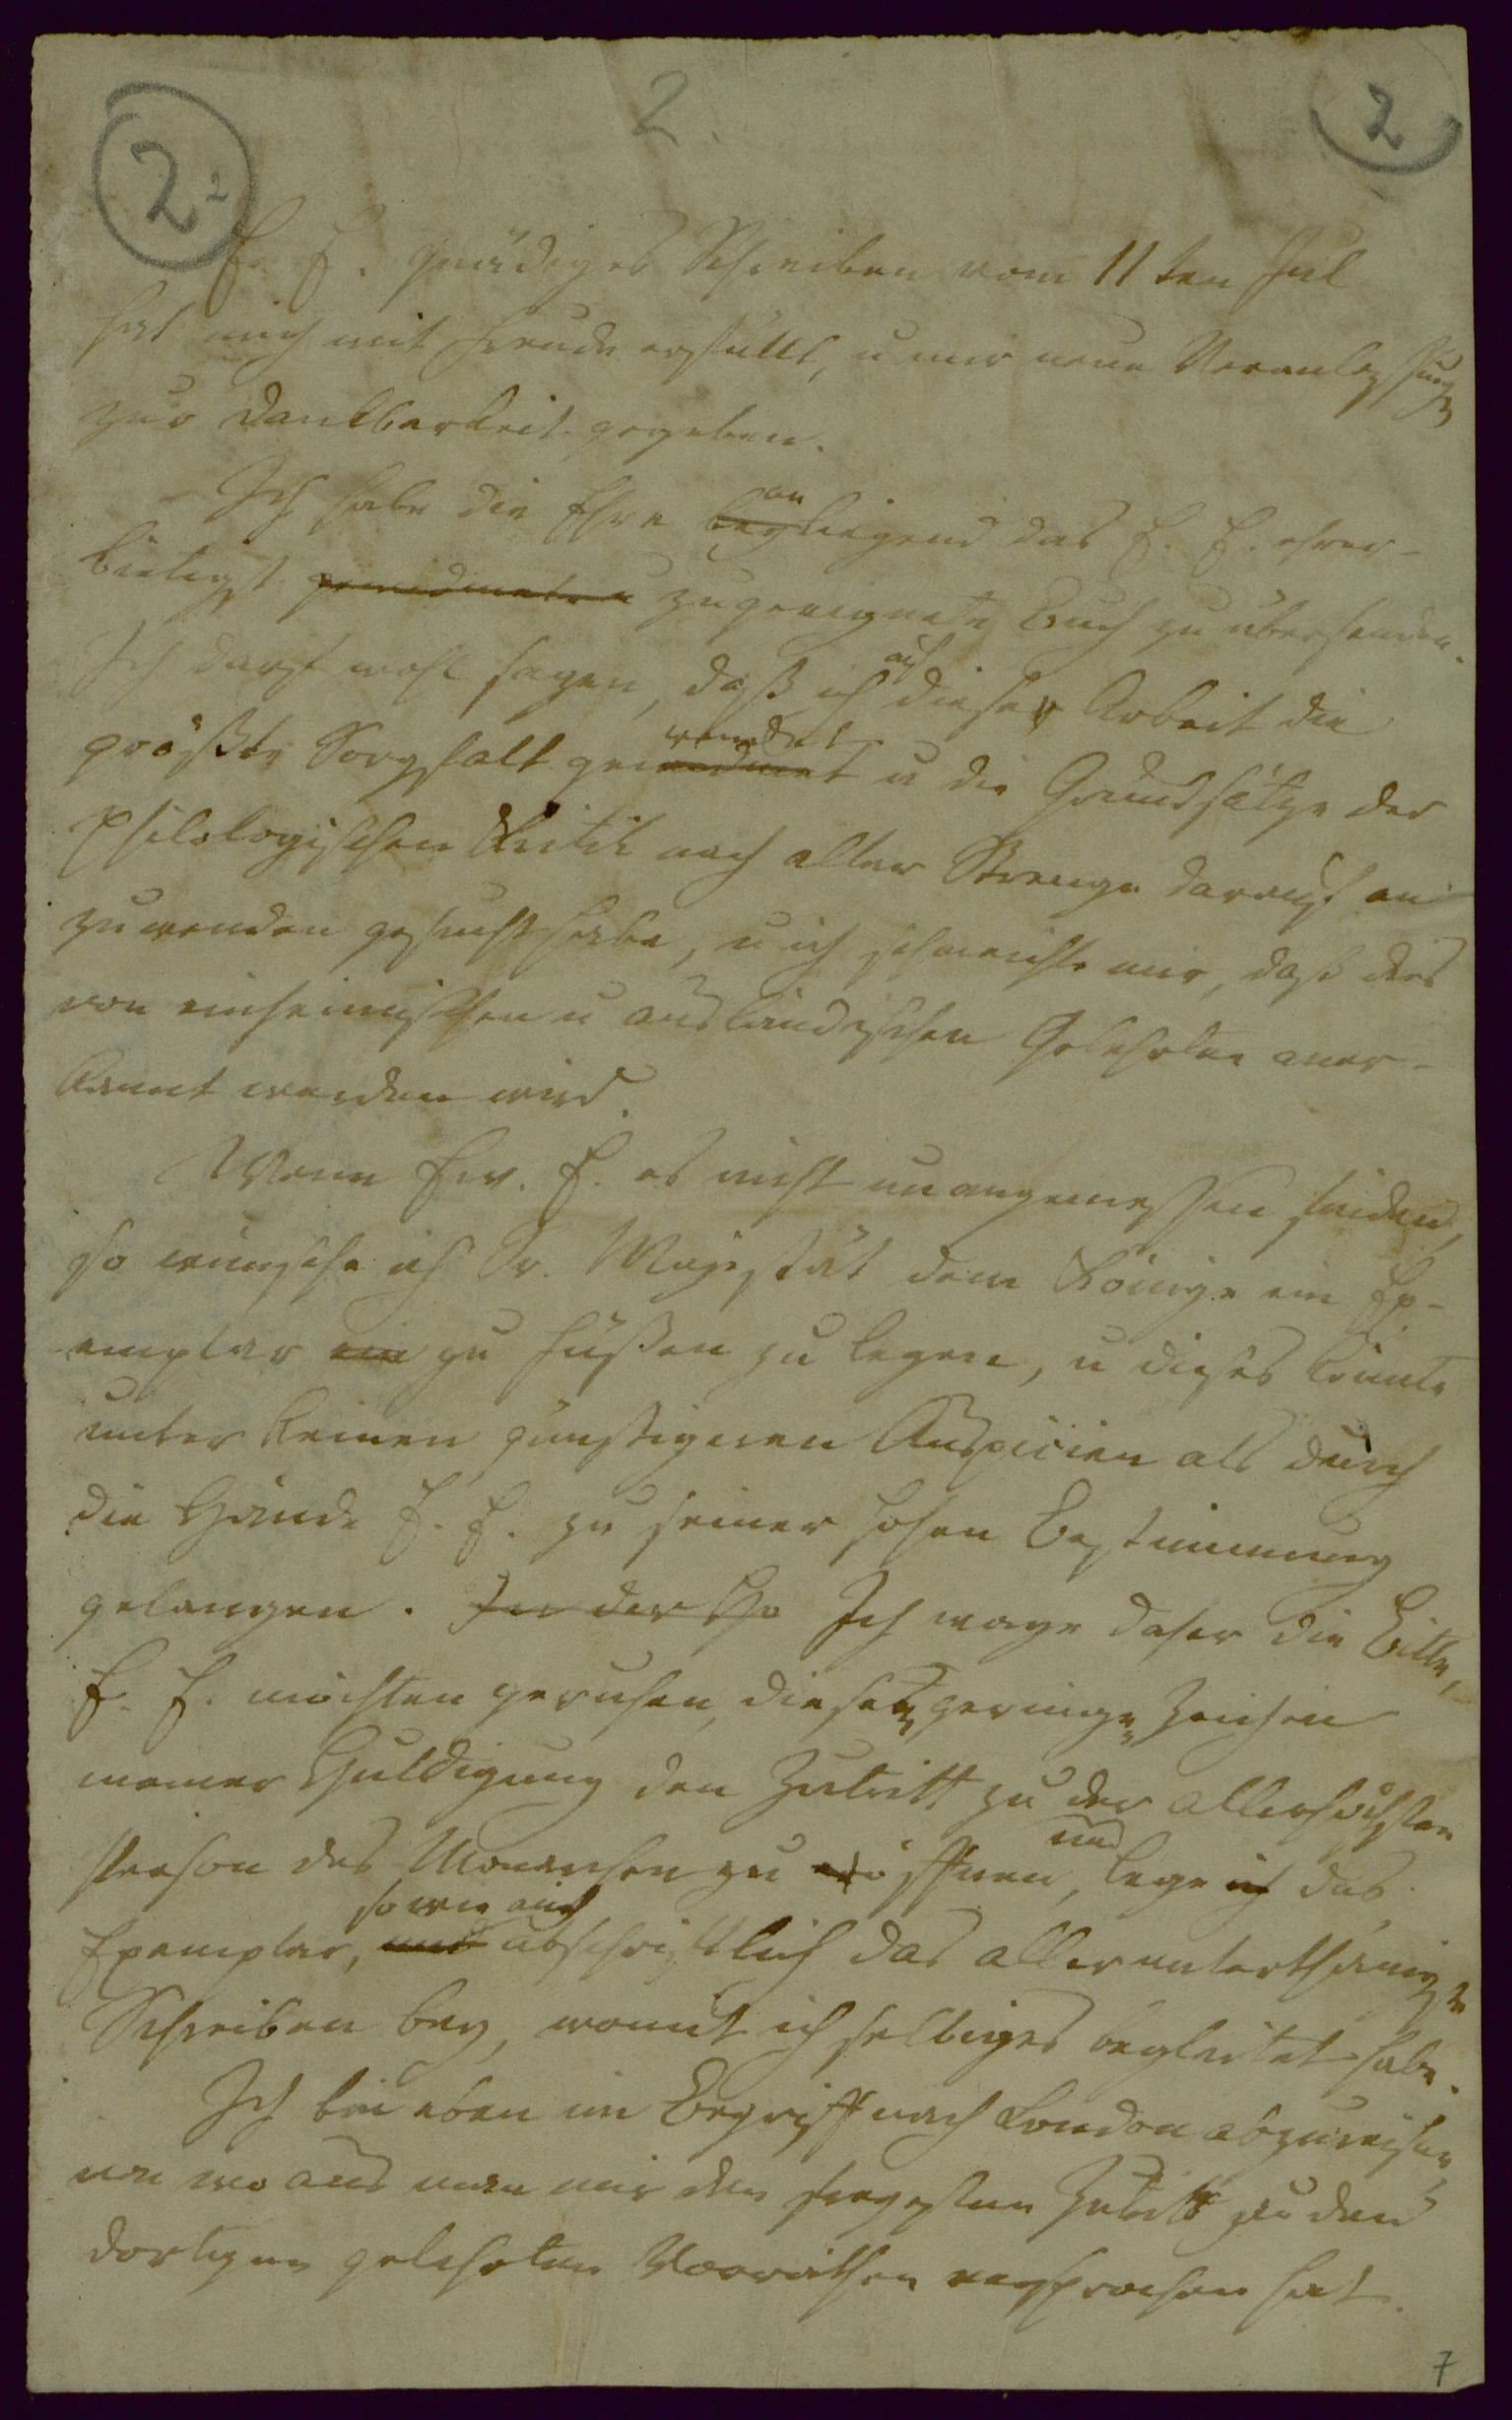 2 2
2.
2
E. E. gnädiges Schreiben vom 11ten Jul
hat mich mit Freude erfüllt, u mir neue Veranlassung
zur Dankbarkeit gegeben.
Ich habe die Ehre
an
beyliegend das E. E. ehrer-
bietigst gewidmete zugeeignete Buch zu übersenden.
Ich darf wohl sagen, daß ich
auf
dieser Arbeit die
größte Sorgfalt
wendet
gewidmet u die Grundsätze der
philologischen Kritik nach aller Strenge darauf an
zuwenden gesucht habe, u ich schmeichle mir, daß dies
von einheimischen u ausländischen Gelehrten aner-
kannt werden wird.
Wenn Ew. E. es nicht unangemessen finden,
so wünsche ich Sr. Majestät dem Könige ein Ex-
emplar ein zu Füßen zu legen, u dieses könnte
unter keinen günstigeren Auspicien als durch
die Hände E. E. zu seiner hohen Bestimmung
gelangen. In der Ho Ich wage daher die Bitte,
E. E. möchten geruhen, diesem geringen Zeichen
meiner Huldigung den Zutritt zu der allerhöchsten
Person des Monarchen zu eröffnen,
und
lege ich das
Exemplar,
so wie auch
und abschriftlich das allerunterthänigste
Schreiben bey, womit ich selbiges begleitet habe.
Ich bin eben im Begriff nach London abzureisen,
von wo aus man mir den freyesten Zutritt zu den
dortigen gelehrten Vorräthen versprochen hat.
7